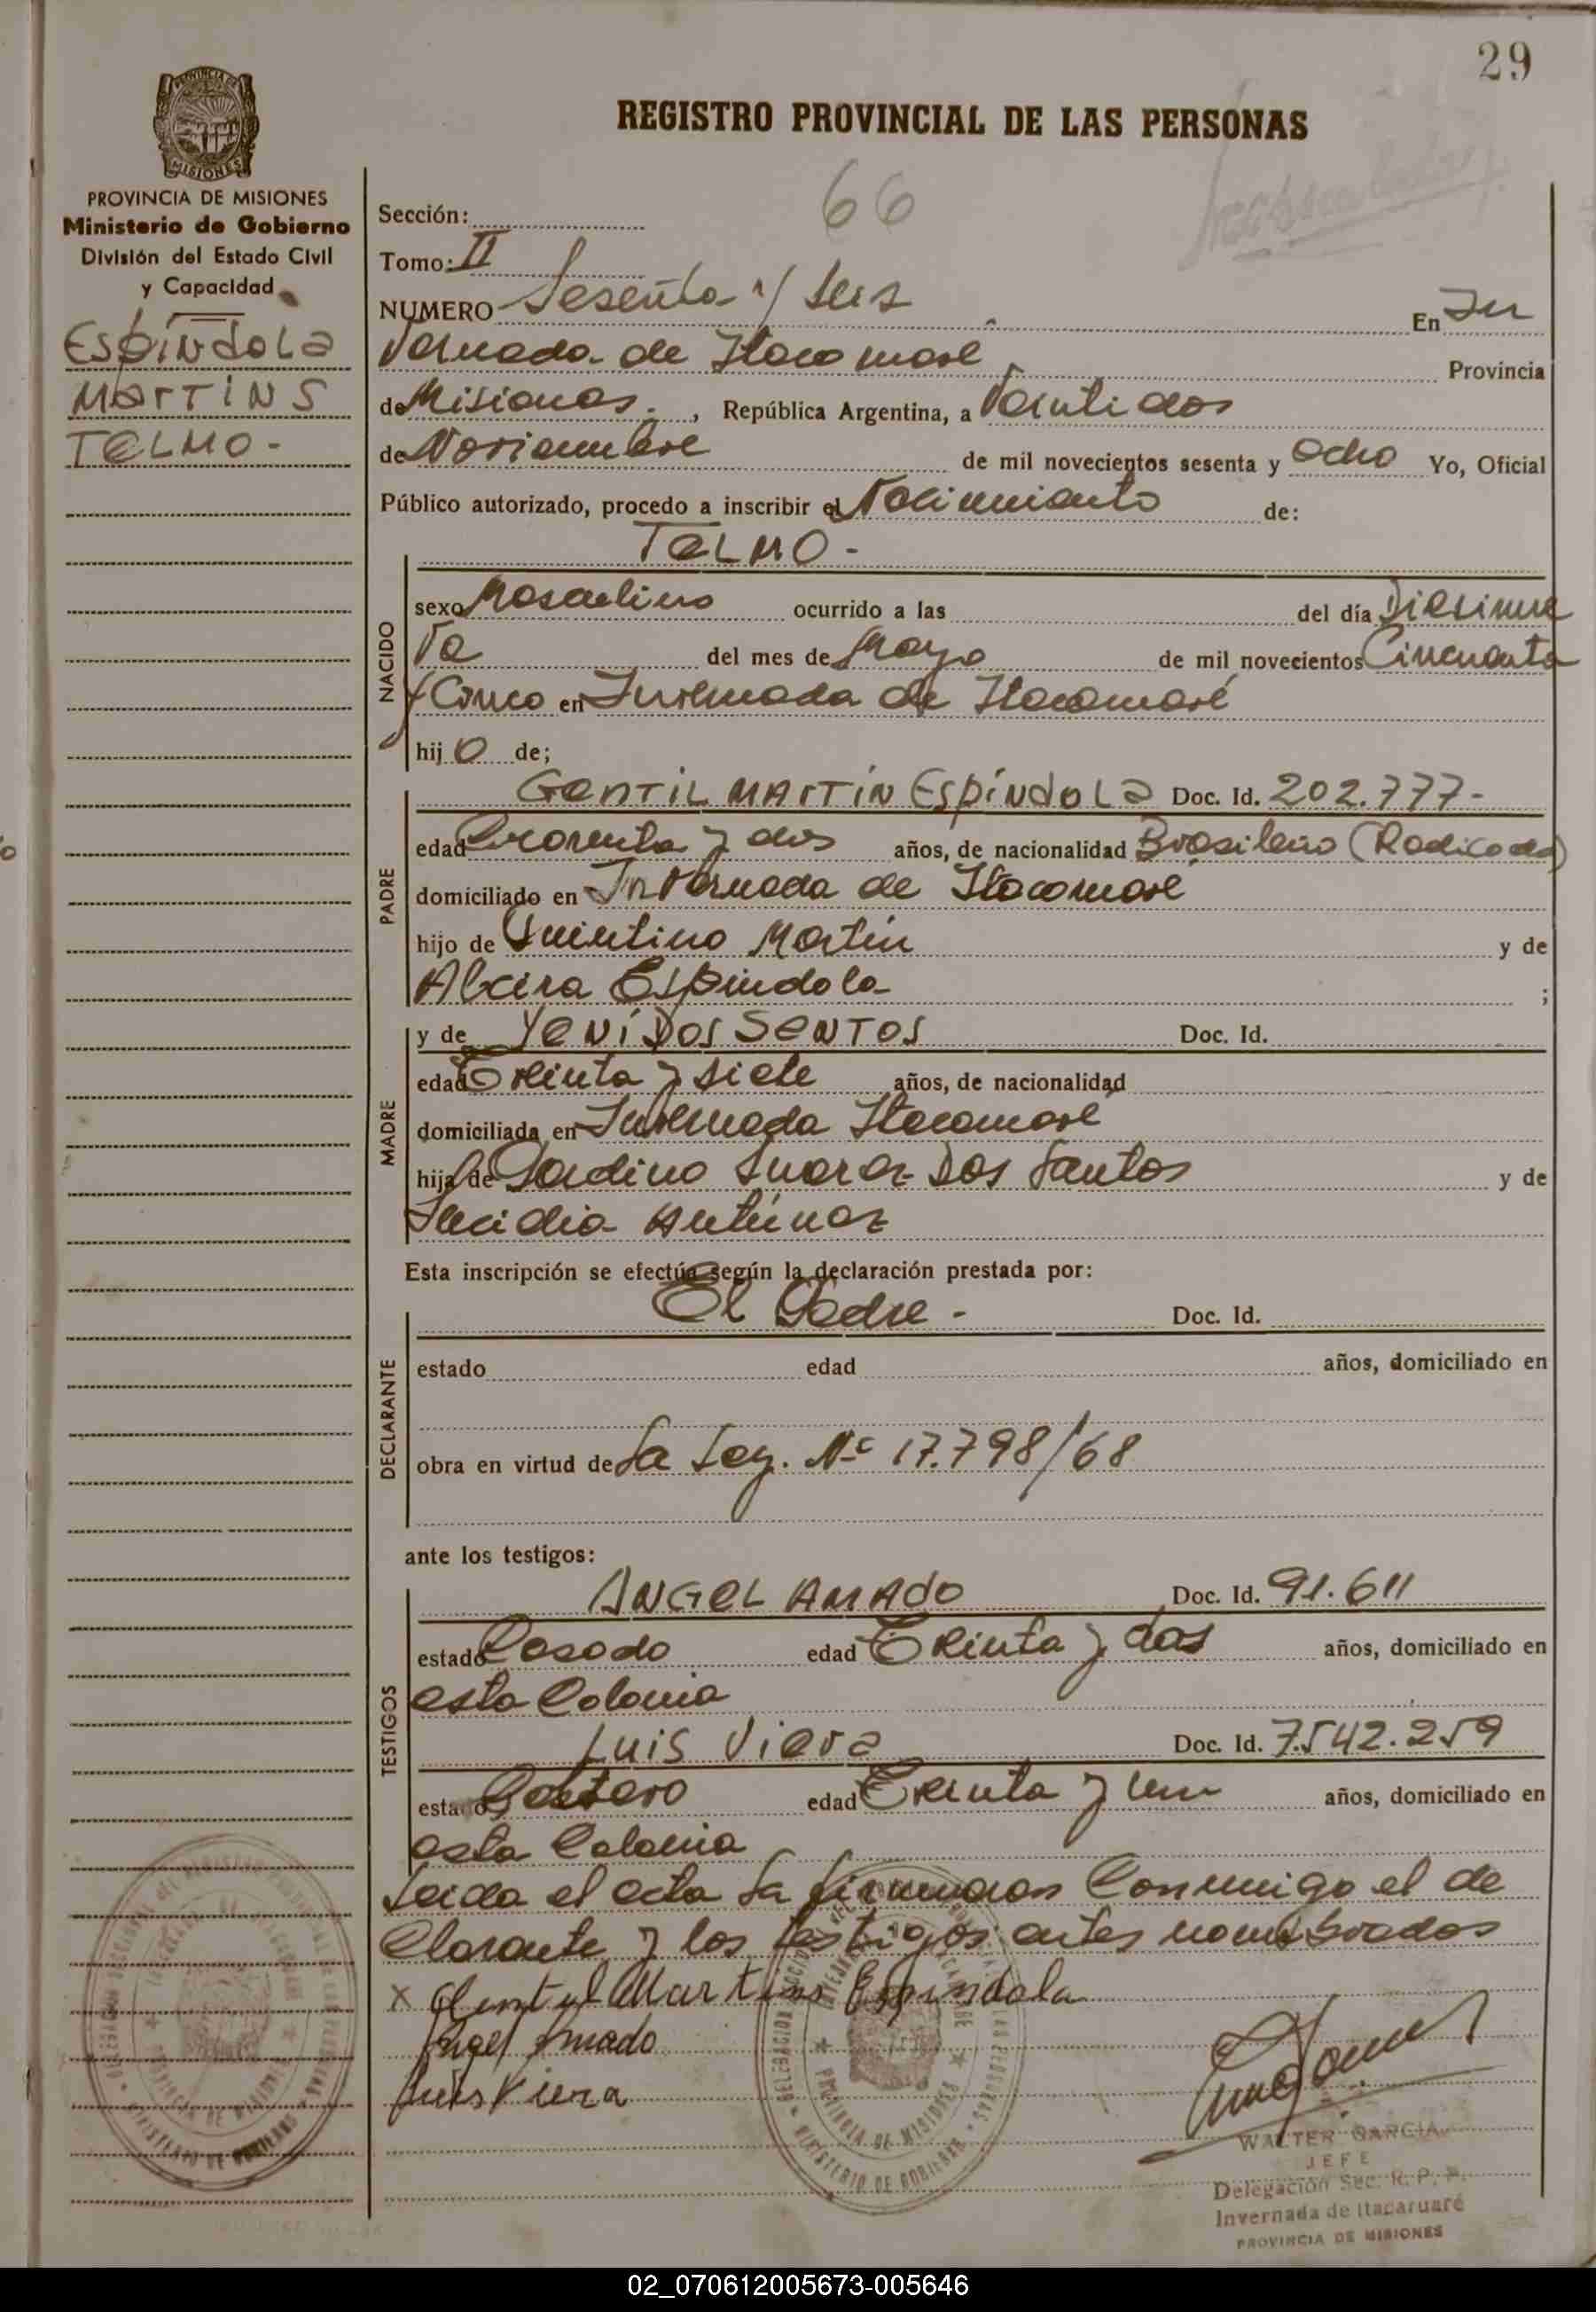 29
PROVINCIA DE MISIONES
REGISTRO PROVINCIAL DE LAS PERSONAS
PROVINCIA DE MISIONES
Ministerio de Gobierno
División del Estado Civil
y Capacidad
ESPíNdOLa
MArTiNS
TELMO-
66
Sección:
Tomo: II
NUMERO Sesenta y Seis En In
Vernada de Itacaruaré Provincia
de Misiones, República Argentina, a Veintidos
de Noviembre de mil novecientos sesenta y Ocho Yo, Oficial
Público autorizado, procedo a inscribir el Nacimiento de:
TELMO-
NACIDO
sexo Masculino ocurrido a las del día Diesinue
Ve del mes de Mayo de mil novecientos Cincuenta
y Cinco en Invernada de Itacaruaré
hijo de;
PADRE
GENTIL MARTíN ESPíNdOLa Doc. Id. 202.777-
edad Cuarenta y dos años, de nacionalidad Brasileño (Radicado)
domiciliado en InVernada de Itacaruaré
hijo de Quintino Martin y de
Alcira Espindola ;
MADRE
y de YENí DOS SANTOS Doc. Id.
edad Treinta y siete años, de nacionalidad
domiciliada en Invernada Itacaruaré
hija de Dos Santos y de
Antúnez
Esta inscripción se efectúa según la declaración prestada por:
DECLARANTE
El Padre- Doc. Id.
estado edad años, domiciliado en
obra en virtud de La Ley. Nº 17.798/68
ante los testigos:
TESTIGOS
ANGEL AMADO Doc. Id. 91.611
estado Casado edad Treinta y dos años, domiciliado en
esta Colonia
LUIS Viera Doc. Id. 7.542.259
estado Soltero edad Treinta y un años, domiciliado en
esta Colonia
Leida el acta La firmaron Conmigo el de
Clarante y los testigos antes nombrados
x Gentil Martins Espindola
Angel Amado
Luis Viera
WALTER GARCIA
JEFE
Delegación Sec. R. P. P.
Invernada de Itacaruaré
PROVINCIA DE MISIONES
02_070612005673-005646